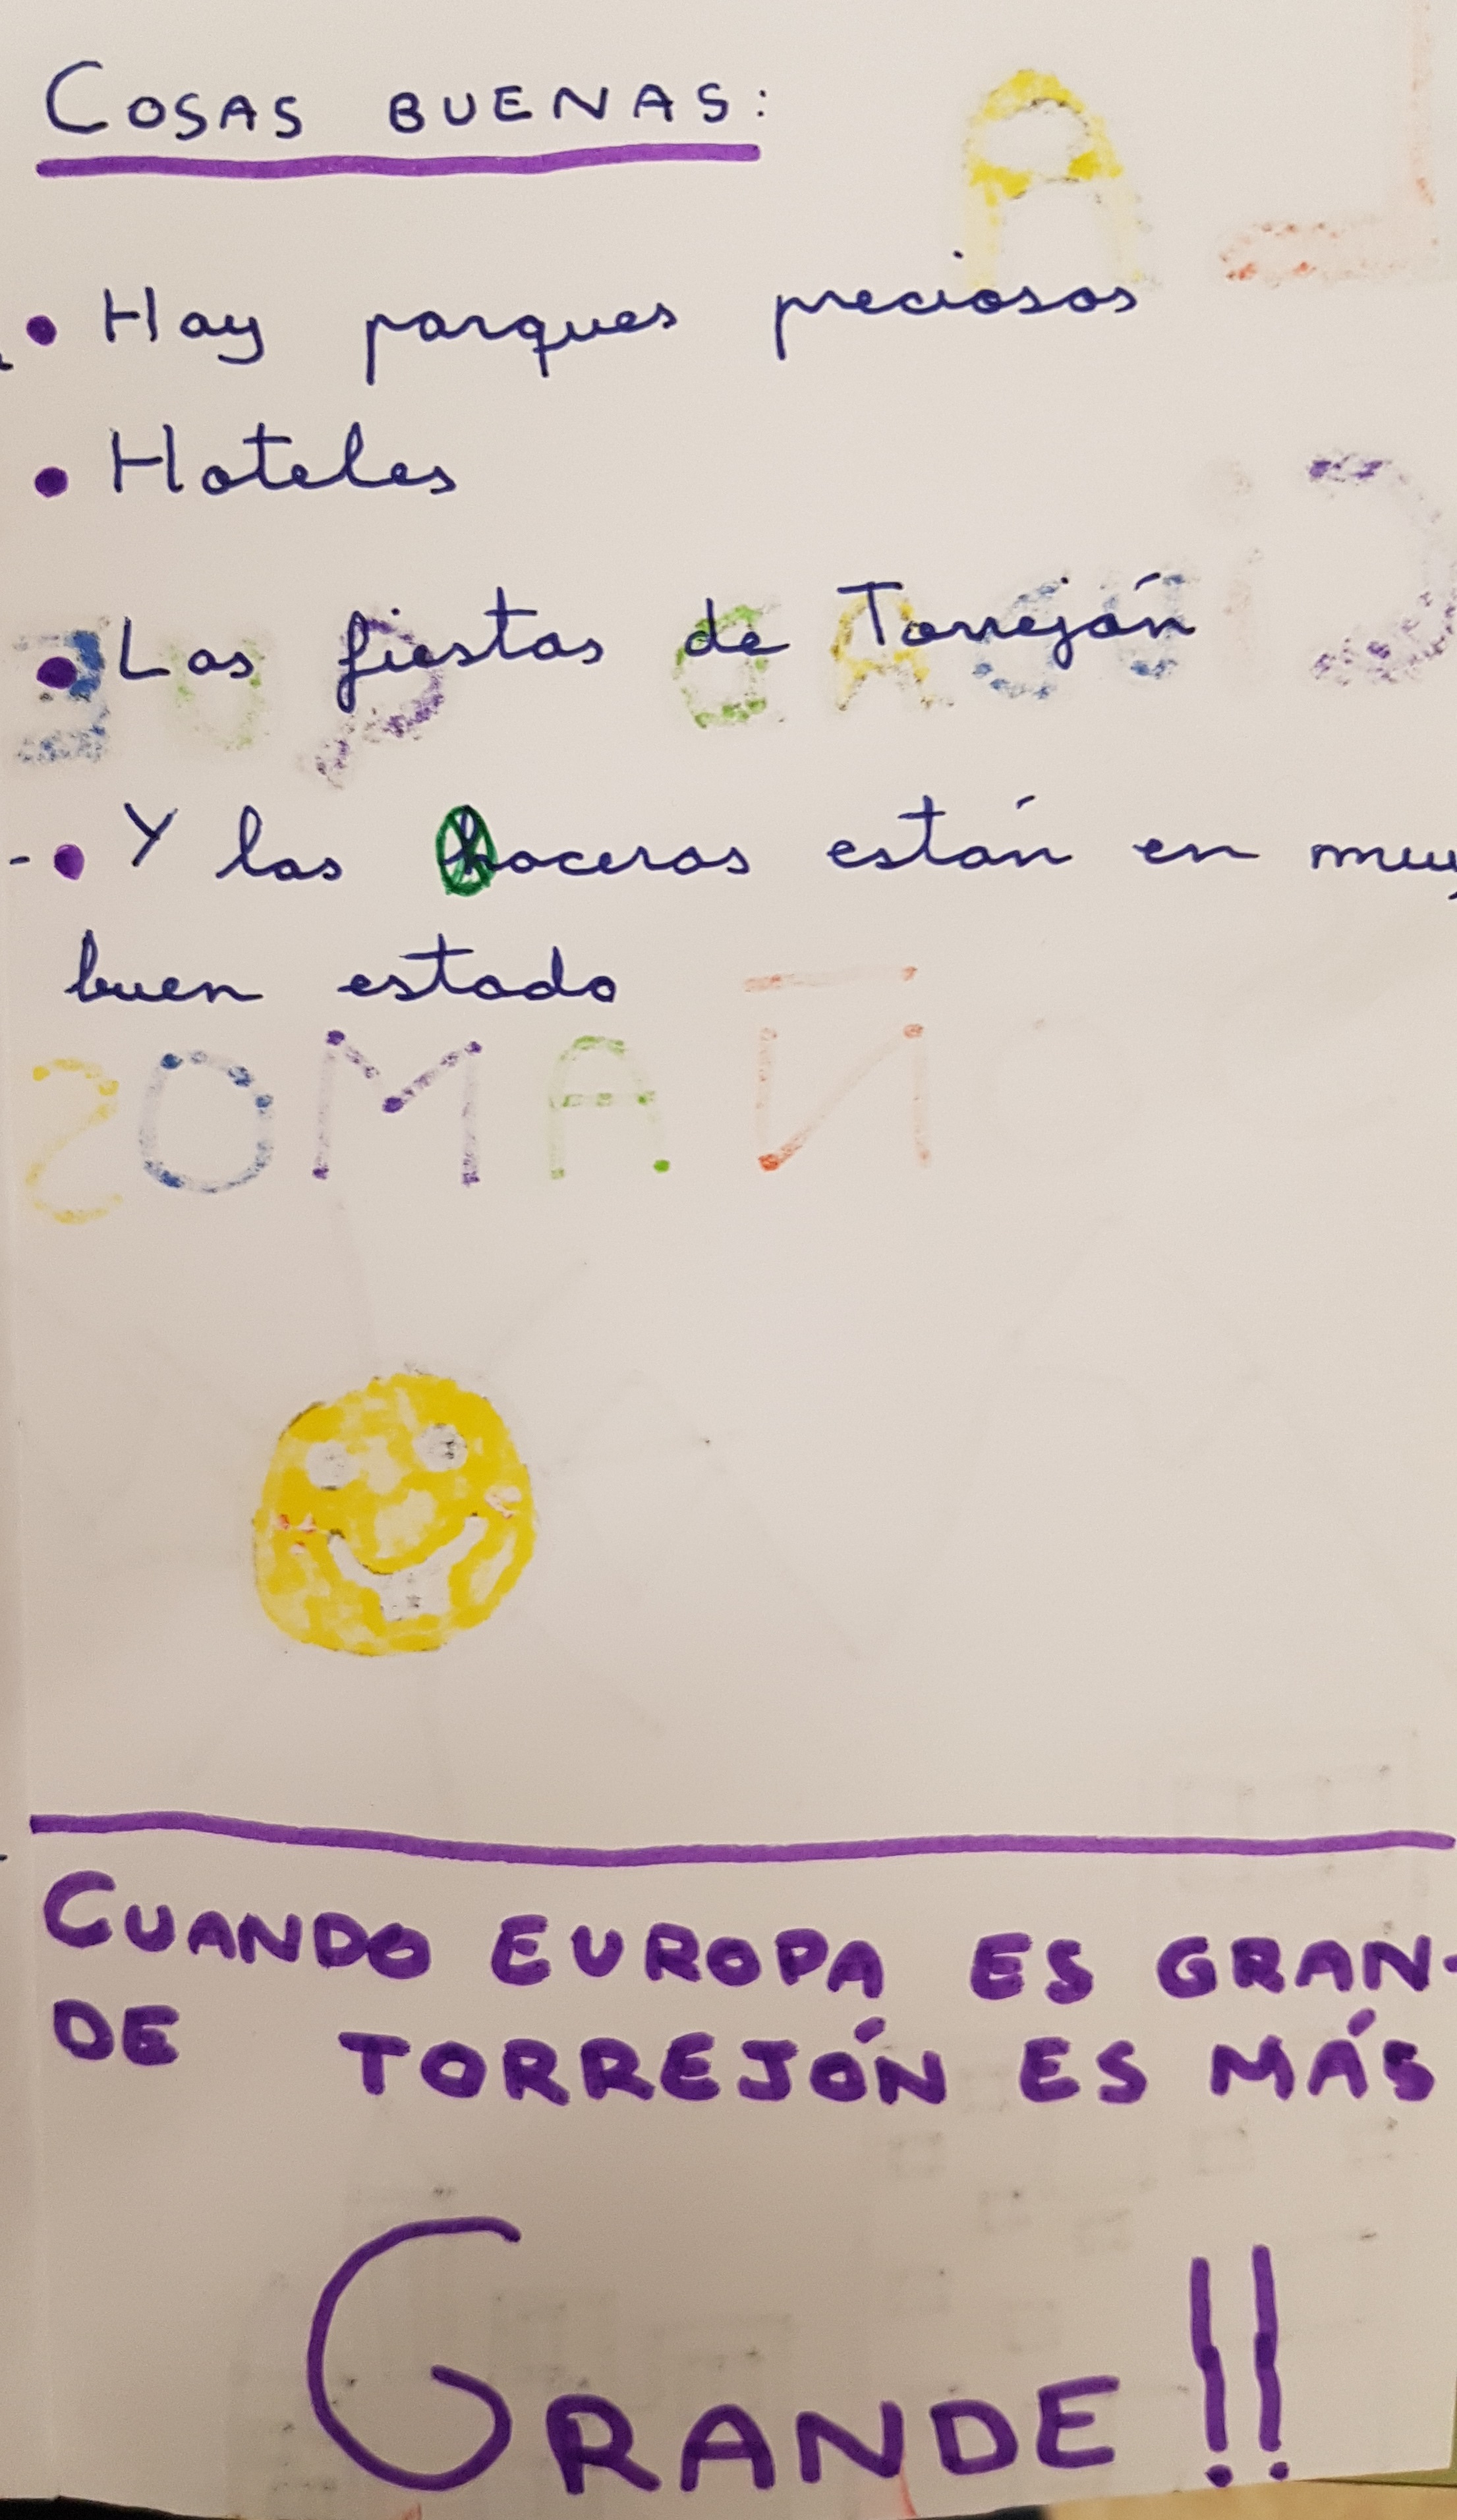 COSAS BUENAS:
• Hay parques preciosos
• Hoteles
• Las fiestas de Torrejón
• Y las aceras están en muy
buen estado
CUANDO EUROPA ES GRAN-
DE TORREJÓN ES MÁS
GRANDE!!